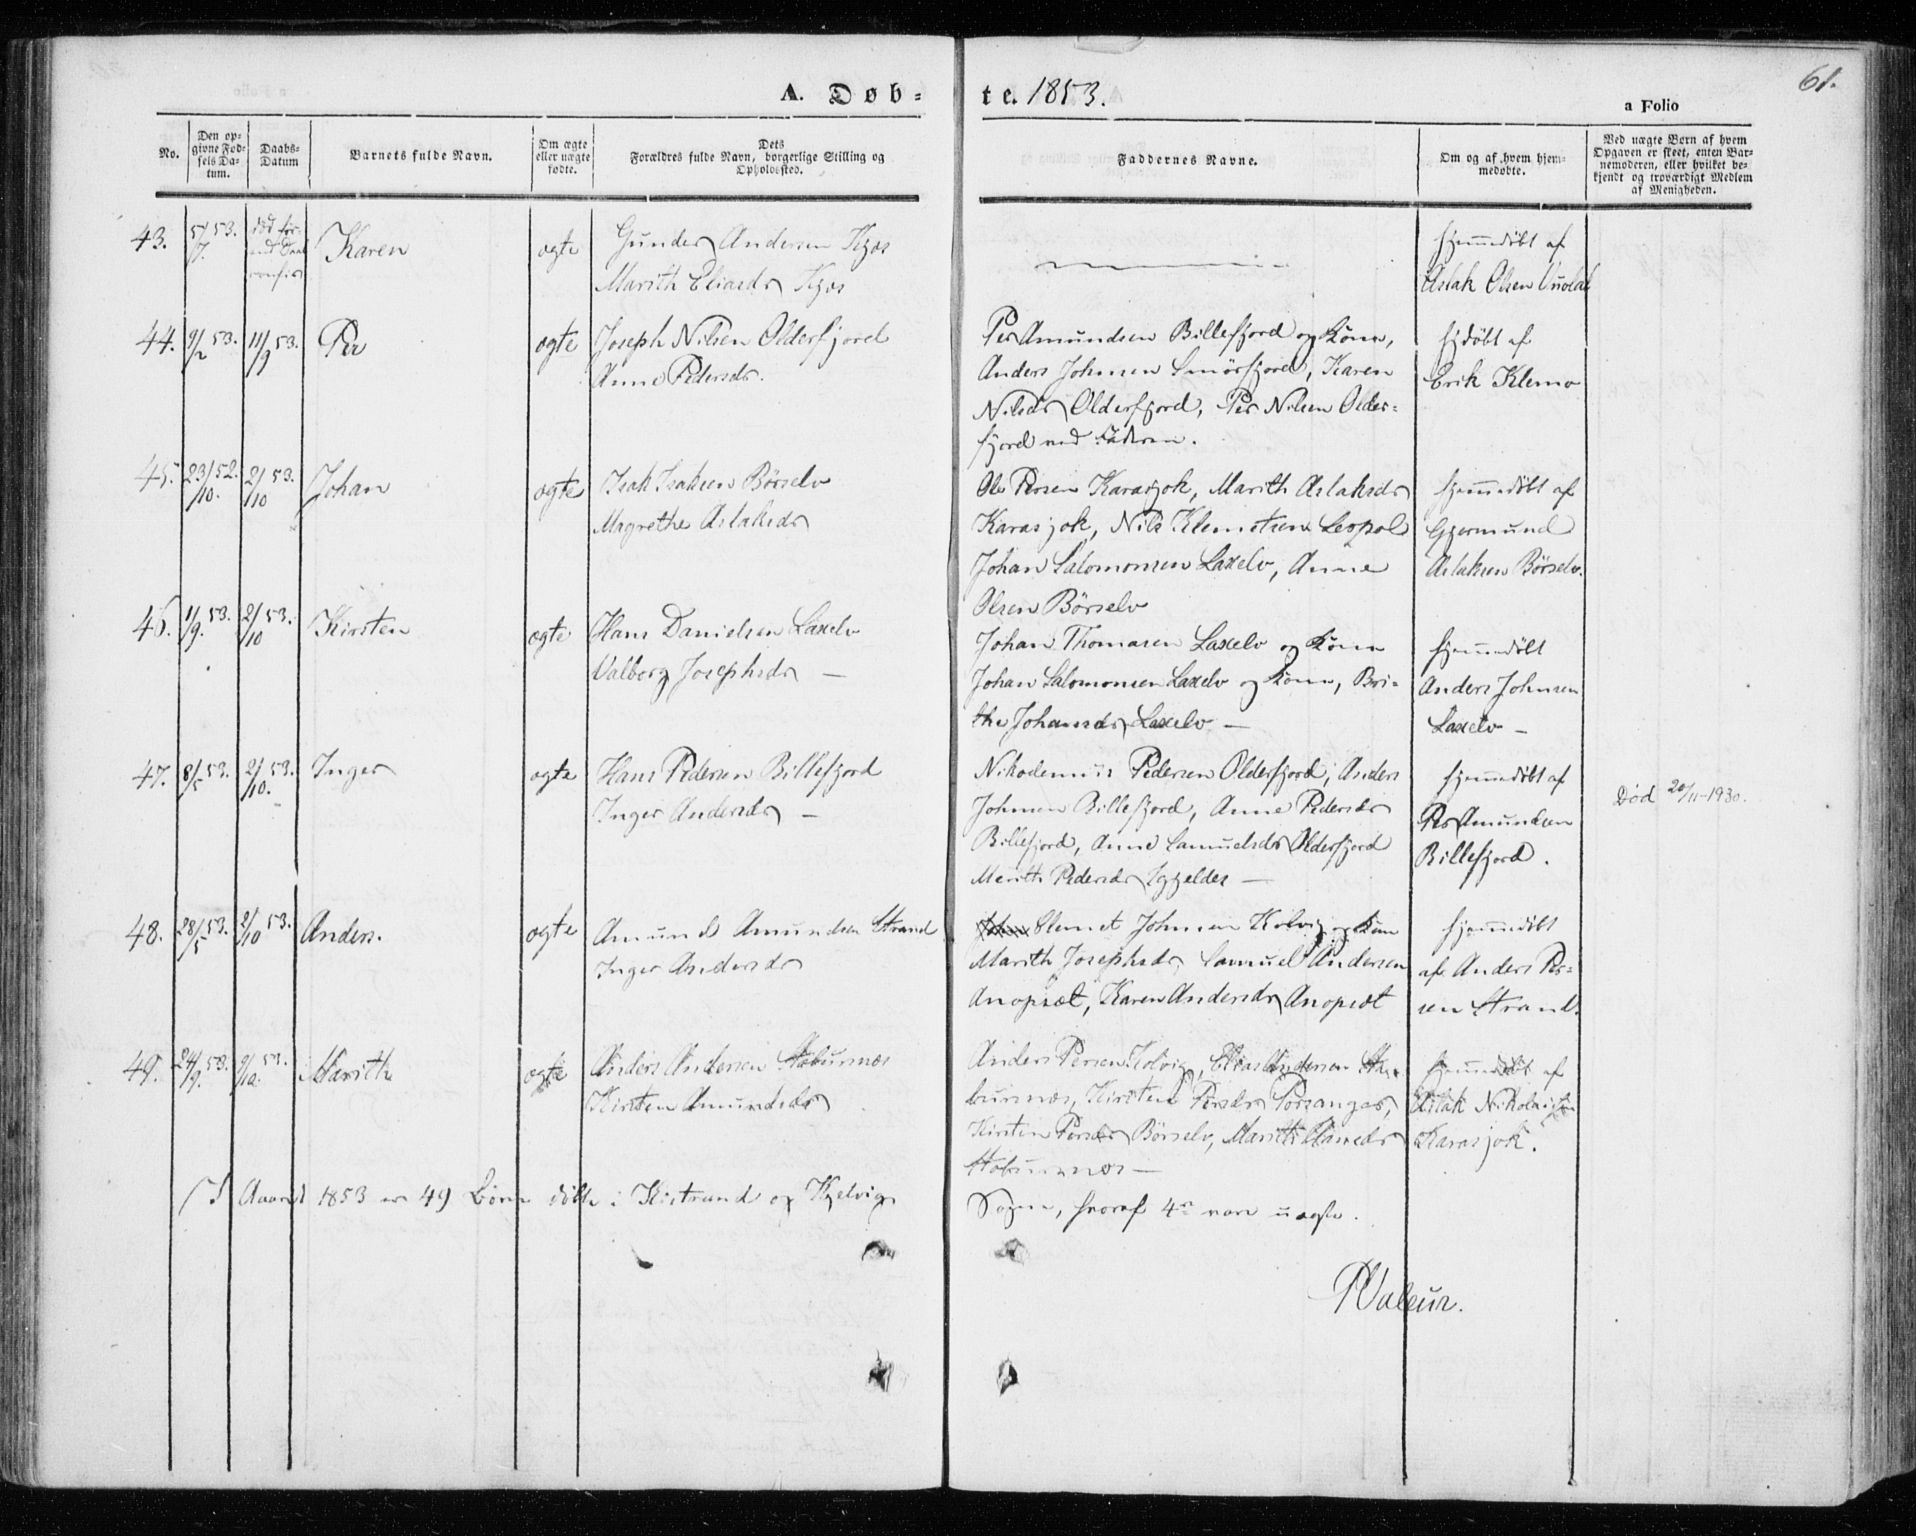 61.
A. Døb-
te. 1853.
a Folio
No.
Den op-
givne Fød-
sels Da-
tum.
Daabs-
Datum
Barnets fulde Navn.
Om ægte
eller uægte
fødte.
Dets
Forældres fulde Navn, borgerlige Stilling og
Opholdssted.
Faddernes Navne.
Om og af hvem hjem-
medøbte.
Ved uægte Børn af hvem
Opgaven er skeet, enten Bar-
nemoderen, eller hvilket be-
kjendt og troværdigt Medlem
af Menigheden.
43. 5/7. 53. død før
Karen
ægte
Gunder Andersen Kjæs
Marith Eliasdr Kjæs
hjemmedøbt af
Aslak Olsen Vuolab
44. 9/2 53. 11/9 53. Per
ægte
Joseph Nilsen Olderfjord
Anne Pedersdr.
Per Amundsen Billefjord og Kone,
Anders Johnsen Smörfjord, Karen
Nilsdr Olderfjord, Per Nilsen Older-
fjord med Faderen.
hjdøbt af
Erik Klemo
45. 23/10. 52. 2/10 53. Johan
ægte
Isak Isaksen Børselv
Magrethe Aslaksdr
Ole Persen Karasjok, Marith Aslaksdr
Karasjok, Nils Klemetsen Leopol
Johan Salomonsen Laxelv, Anne
Olsen Børselv
hjemmedøbt af
Gjermund
Aslaksen Børselv.
46. 1/9. 53. 2/10 53. Kirsten
ægte
Hans Danielsen Laxelv
Valborg Josephsdr —
Johan Thomasen Laxelv og Kone
Johan Salomonsen Laxelv og Kone, Bri-
the Johansdr Laxelv —
hjemmedøbt
Anders Johnsen
Laxelv —
47. 8/5 53. 2/10. 53. Inger
ægte
Hans Pedersen Billefjord
Inger Andersdr —
Nikodemus Pedersen Olderfjord, Anders
Johnsen Billefjord, Anne Pedersdr
Billefjord, Anne Samuelsdr Olderfjord
Marith Pedersdr Igjeldes —
hjemmedøbt af
Per Amundsen
Billefjord.
Død 20/11-1930.
48. 28/5 53. 2/10 53. Anders.
ægte
Amund Amundsen Strand
Inger Andersdr
Klemet Johnsen Kolvig og Kone
Marith Josephsdr, Samuel Andersen
Anopset, Karen Andersdr Anopset
hjemmedøbt
af Anders Per-
sen Strand.
49. 24/9. 53. 9/10. 53. Marith
ægte
Anders Andersen Stoburnæs
Kirsten Amundsdr
Anders Persen Kolvig, Elias Andersen Sto-
burnæs, Kirsten Persdr Porsanger,
Kirsten Persdr Børselv, Marith Hansdr
Stoburnæs —
hjemmedøbt af
Aslak Nikolaisen
Karasjok.
I Aaret 1853 er 49 Børn døbte i Kistrand og Kjelvigs
Sogne, hvoraf 4re vare uægte.
PValeur.